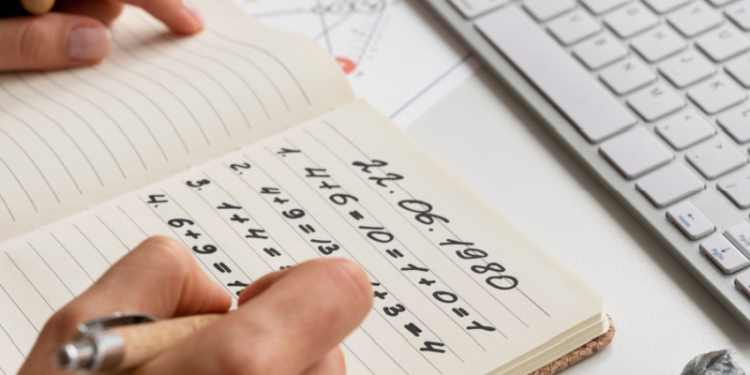 22. 06. 1980
1. 4+6=10=1+0=1
2. 4+9=13 +3=4
3. 1+4=
4. 6+9=1